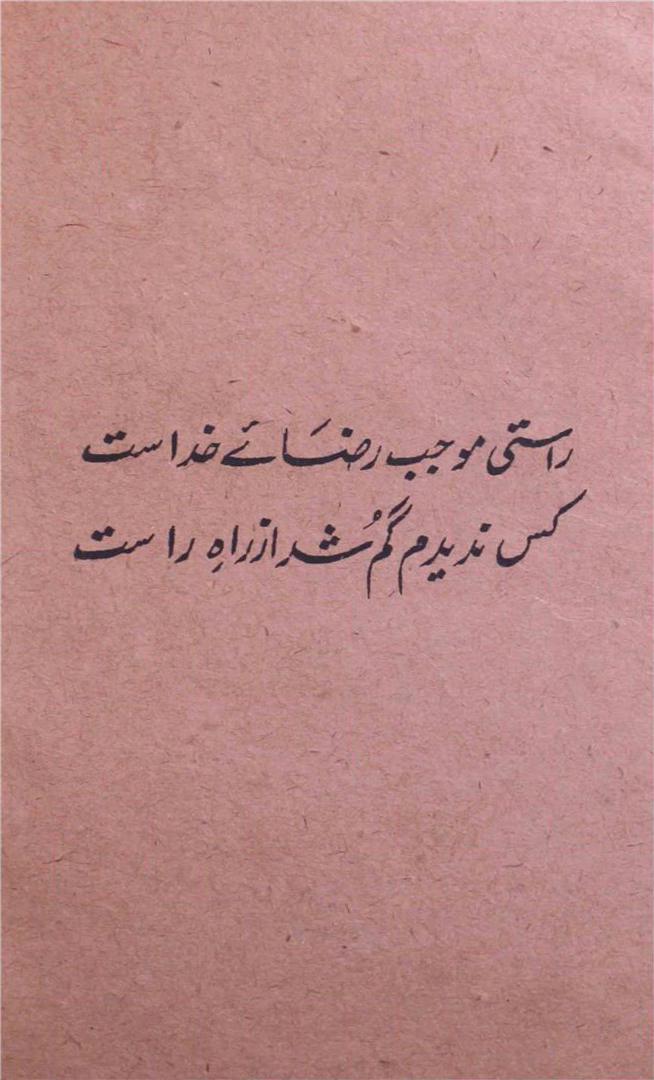 راستی موجب رضائے خداست
کس ندیدم گم شُد از راہِ راست